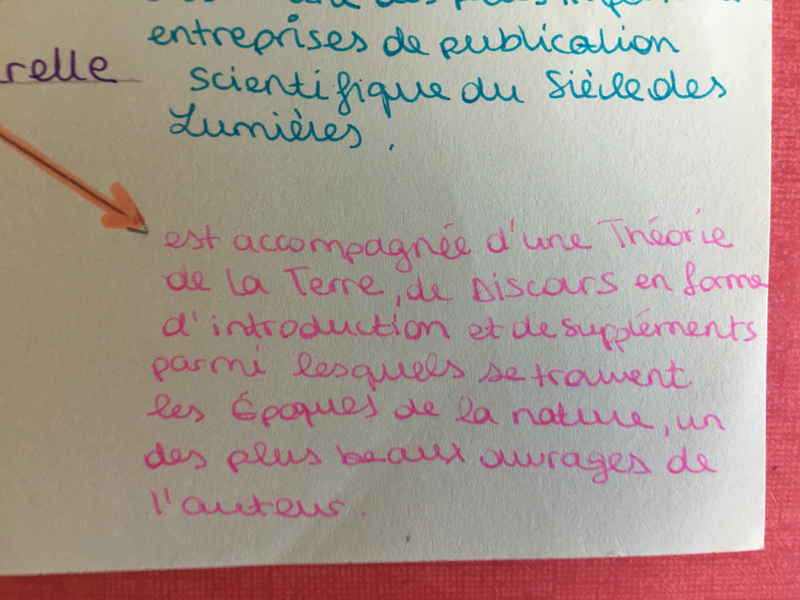 entreprises de publication
relle
scientifique du Siècle des
Lumières.
est accompagnée d'une Théorie
de la Terre, de Discours en forme
d'introduction et de suppléments
parmi lesquels se trouvent
les Époques de la nature, un
des plus beaux ouvrages de
l'auteur.